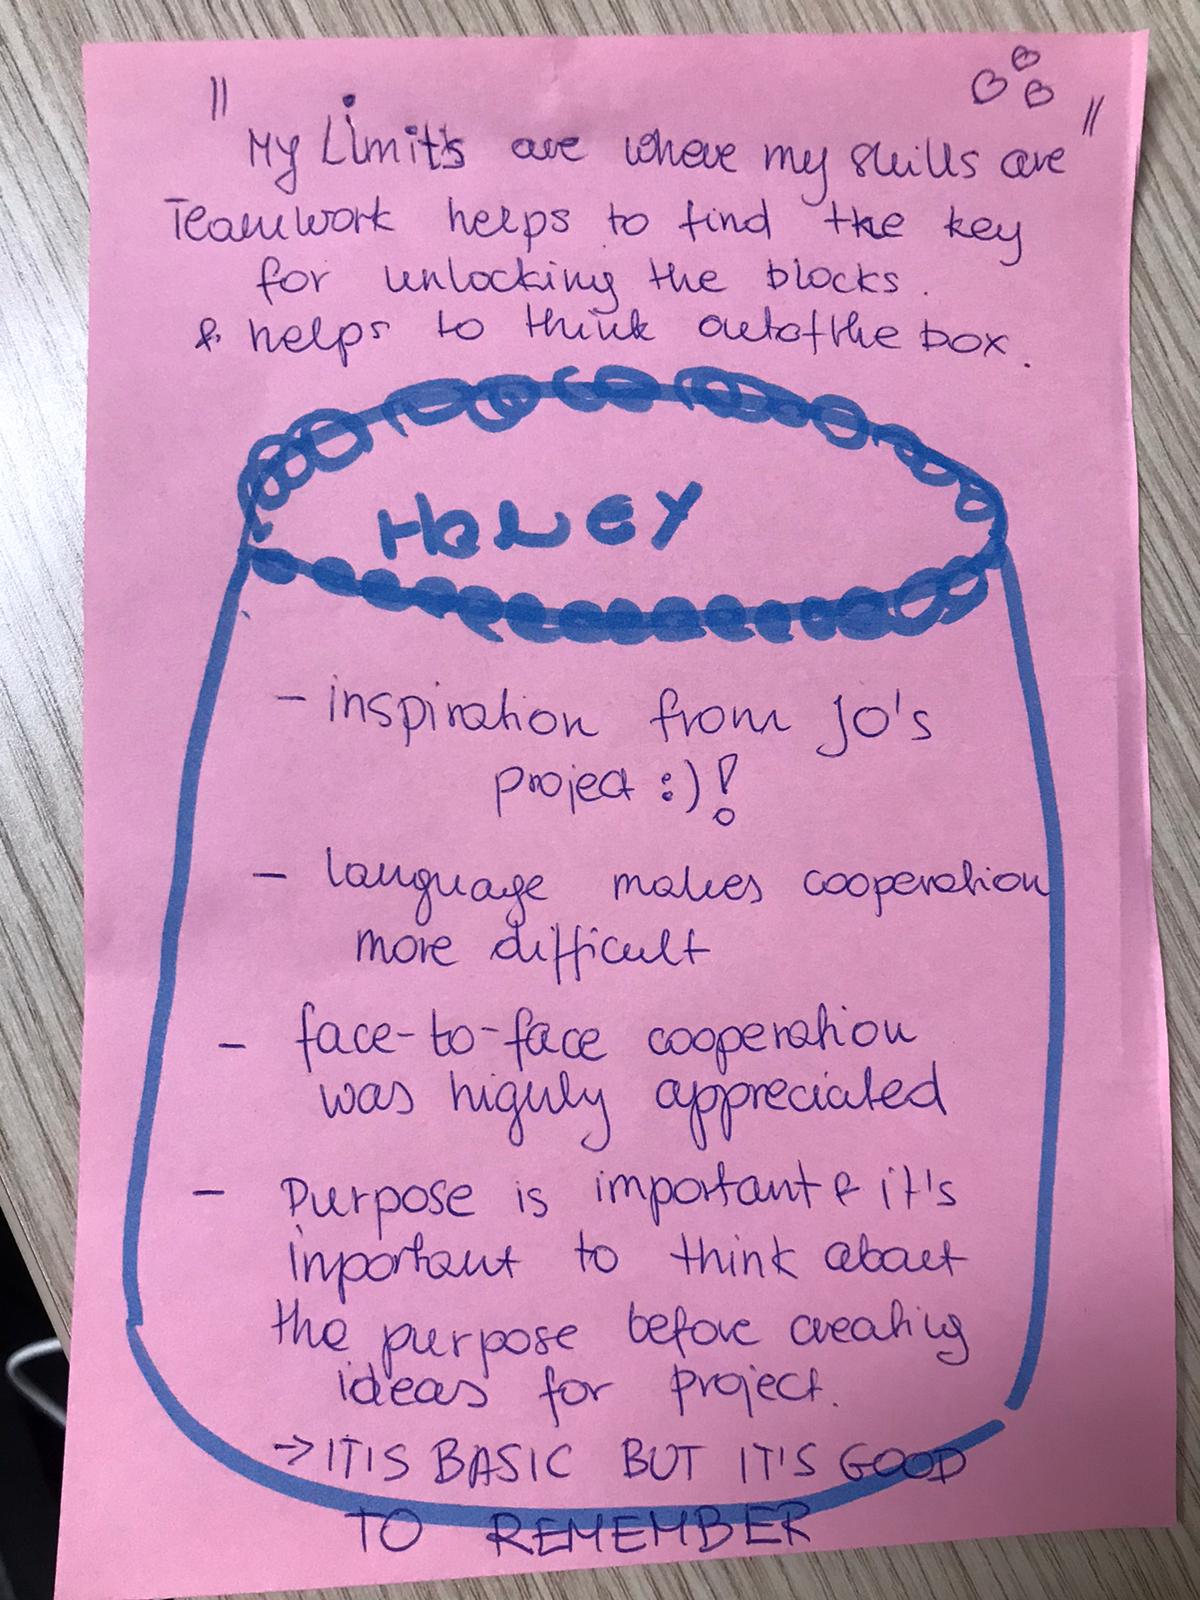 " My Limits are where my skills are "
Teamwork helps to find the key
for unlocking the blocks.
& helps to think out of the box.
HONEY
- inspiration from JO's
project :) !
- language makes cooperation
more difficult
- face-to-face cooperation
was highly appreciated
- Purpose is important & it's
inportant to think about
the purpose before creating
ideas for project.
→ IT IS BASIC BUT IT'S GOOD
TO REMEMBER